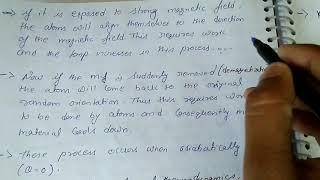 → If it is exposed to strong magnetic field,
the atoms will align themselves to the direction
of the magnetic field. This requires work
and the temp increases in this process....
→ Now if the mf is suddenly removed (demagnetisa
the atoms will come back to the original
random orientation. Thus this requires work
to be done by atoms and consequently
material cools down.
→ These process occurs when adiabatically
(Q=0).
thermodynamics,